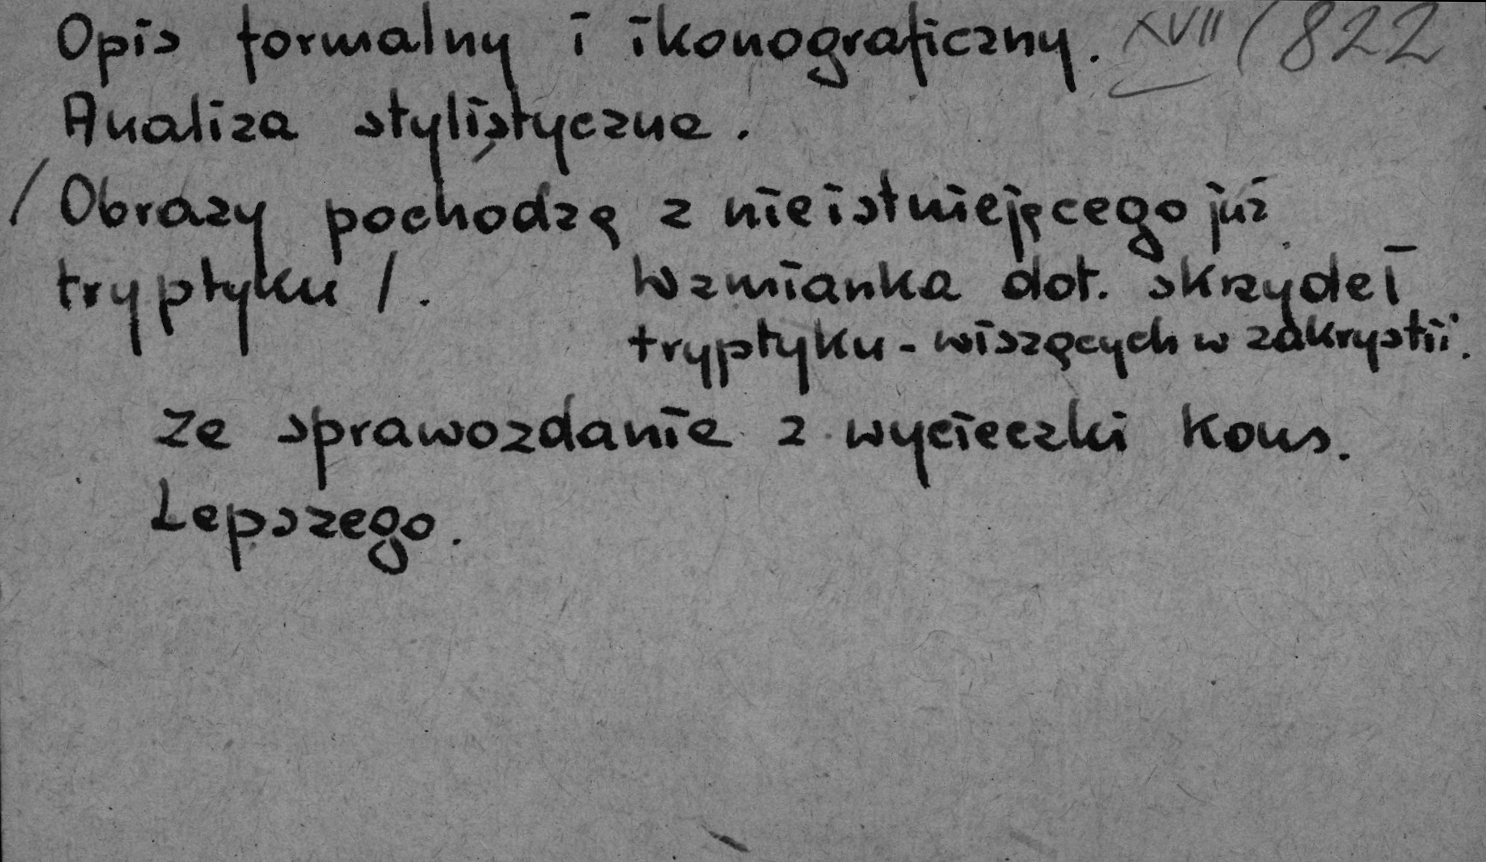 Opis formalny i ikonograficzny. XVII/822
Analiza stylistyczna.
/Obrazy pochodzą z nieistniejącego już
tryptyku/. Wzmianka dot. skrzydeł
tryptyku - wiszących w zakrystii.
Ze sprawozdanie z wycieczki Kons.
Lepszego.